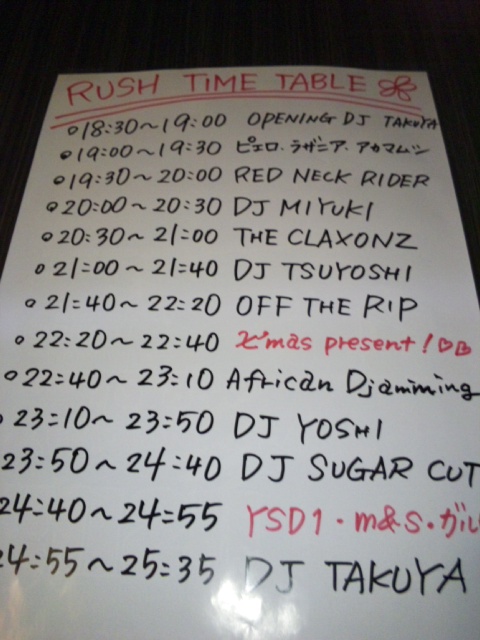 RUSH TIME TABLE
18:30~19:00 OPENING DJ TAKUYA
19:00~19:30 ピエロ.ラザニア.アカマムシ
19:30~20:00 RED NECK RIDER
20:00~20:30 DJ MIYUKI
20:30~21:00 THE CLAXONZ
21:00~21:40 DJ TSUYOSHI
21:40~22:20 OFF THE RIP
22:20~22:40 X'mas present!♡♡
22:40~23:10 African Djamming
23:10~23:50 DJ YOSHI
23:50~24:40 DJ SUGAR CUT
24:40~24:55 YSD1・m&S・ガル
24:55~25:35 DJ TAKUYA